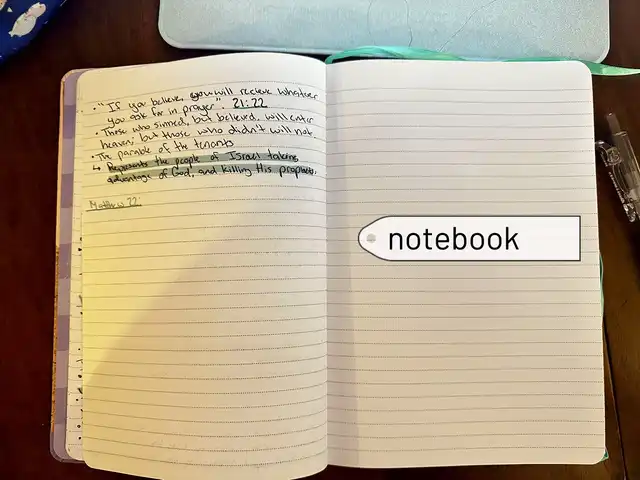 • "If you believe, you will recieve whatever
you ask for in prayer". 21:22
• Those who sinned, but believed, will enter
heaven, but those who didn't will not.
• The parable of the tenants
↳ Represents the people of Israel taking
advantage of God, and killing His prophets.
Matthew 22:
notebook